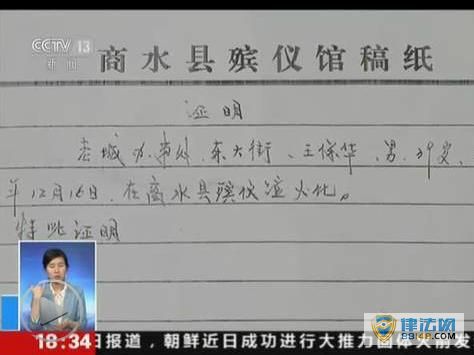 CCTV 13
新闻
商水县殡仪馆稿纸
证明
老城办事处东大街、王保华、男、39岁、
年12月16日、在商水县殡仪馆火化。
特此证明
律法网
18:34 日报道，朝鲜近日成功进行大推力固体火箭发